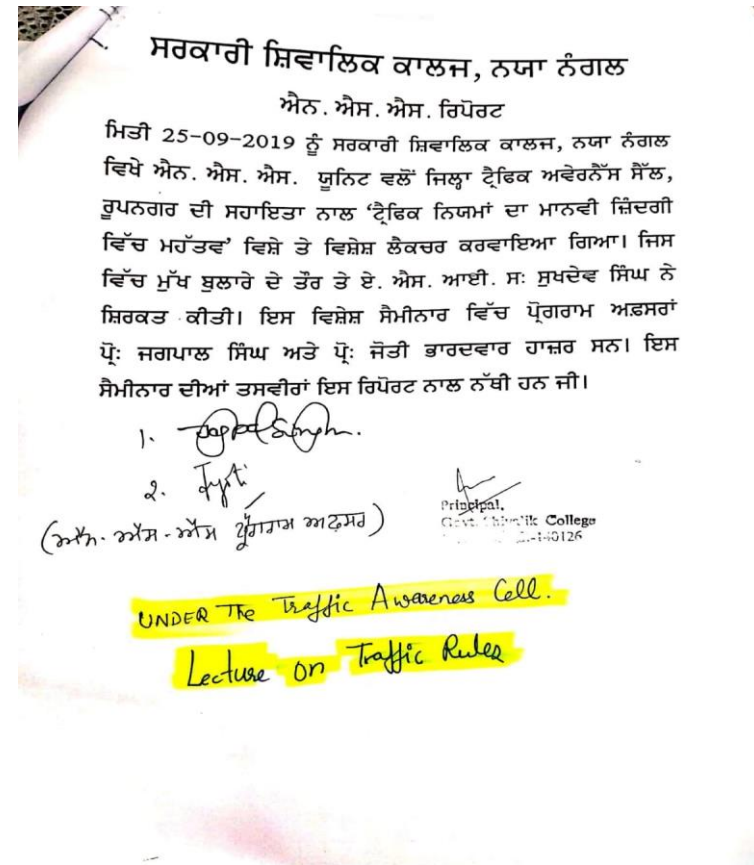 ਸਰਕਾਰੀ ਸ਼ਿਵਾਲਿਕ ਕਾਲਜ, ਨਯਾ ਨੰਗਲ
ਐਨ. ਐਸ. ਐਸ. ਰਿਪੋਰਟ
ਮਿਤੀ 25-09-2019 ਨੂੰ ਸਰਕਾਰੀ ਸ਼ਿਵਾਲਿਕ ਕਾਲਜ, ਨਯਾ ਨੰਗਲ
ਵਿਖੇ ਐਨ. ਐਸ. ਐਸ. ਯੂਨਿਟ ਵਲੋਂ ਜਿਲ੍ਹਾ ਟ੍ਰੈਫਿਕ ਅਵੇਰਨੈੱਸ ਸੈੱਲ,
ਰੂਪਨਗਰ ਦੀ ਸਹਾਇਤਾ ਨਾਲ ‘ਟ੍ਰੈਫਿਕ ਨਿਯਮਾਂ ਦਾ ਮਾਨਵੀ ਜ਼ਿੰਦਗੀ
ਵਿੱਚ ਮਹੱਤਵ’ ਵਿਸ਼ੇ ਤੇ ਵਿਸ਼ੇਸ਼ ਲੈਕਚਰ ਕਰਵਾਇਆ ਗਿਆ। ਜਿਸ
ਵਿੱਚ ਮੁੱਖ ਬੁਲਾਰੇ ਦੇ ਤੌਰ ਤੇ ਏ. ਐਸ. ਆਈ. ਸਃ ਸੁਖਦੇਵ ਸਿੰਘ ਨੇ
ਸ਼ਿਰਕਤ ਕੀਤੀ। ਇਸ ਵਿਸ਼ੇਸ਼ ਸੈਮੀਨਾਰ ਵਿੱਚ ਪ੍ਰੋਗਰਾਮ ਅਫ਼ਸਰਾਂ
ਪ੍ਰੋਃ ਜਗਪਾਲ ਸਿੰਘ ਅਤੇ ਪ੍ਰੋਃ ਜੋਤੀ ਭਾਰਦਵਾਰ ਹਾਜ਼ਰ ਸਨ। ਇਸ
ਸੈਮੀਨਾਰ ਦੀਆਂ ਤਸਵੀਰਾਂ ਇਸ ਰਿਪੋਰਟ ਨਾਲ ਨੱਥੀ ਹਨ ਜੀ।
1. Jagpal Singh.
2. Jyoti
(ਐੱਨ. ਐੱਸ. ਐੱਸ ਪ੍ਰੋਗਰਾਮ ਅਫ਼ਸਰ)
Principal,
Govt. Shivalik College
140126
UNDER The Traffic Awareness Cell.
Lecture on Traffic Rules